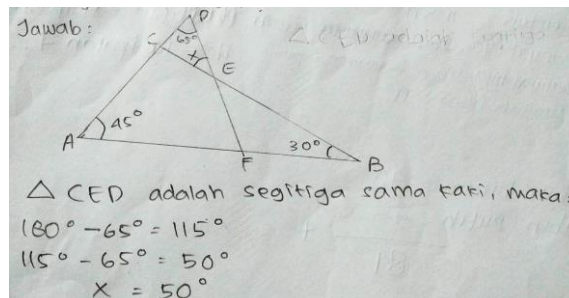 Jawab:
D
C
65°
x
E
A
45°
F
30°
B
△ CED adalah segitiga sama kaki, maka:
180° - 65° = 115°
115° - 65° = 50°
x = 50°